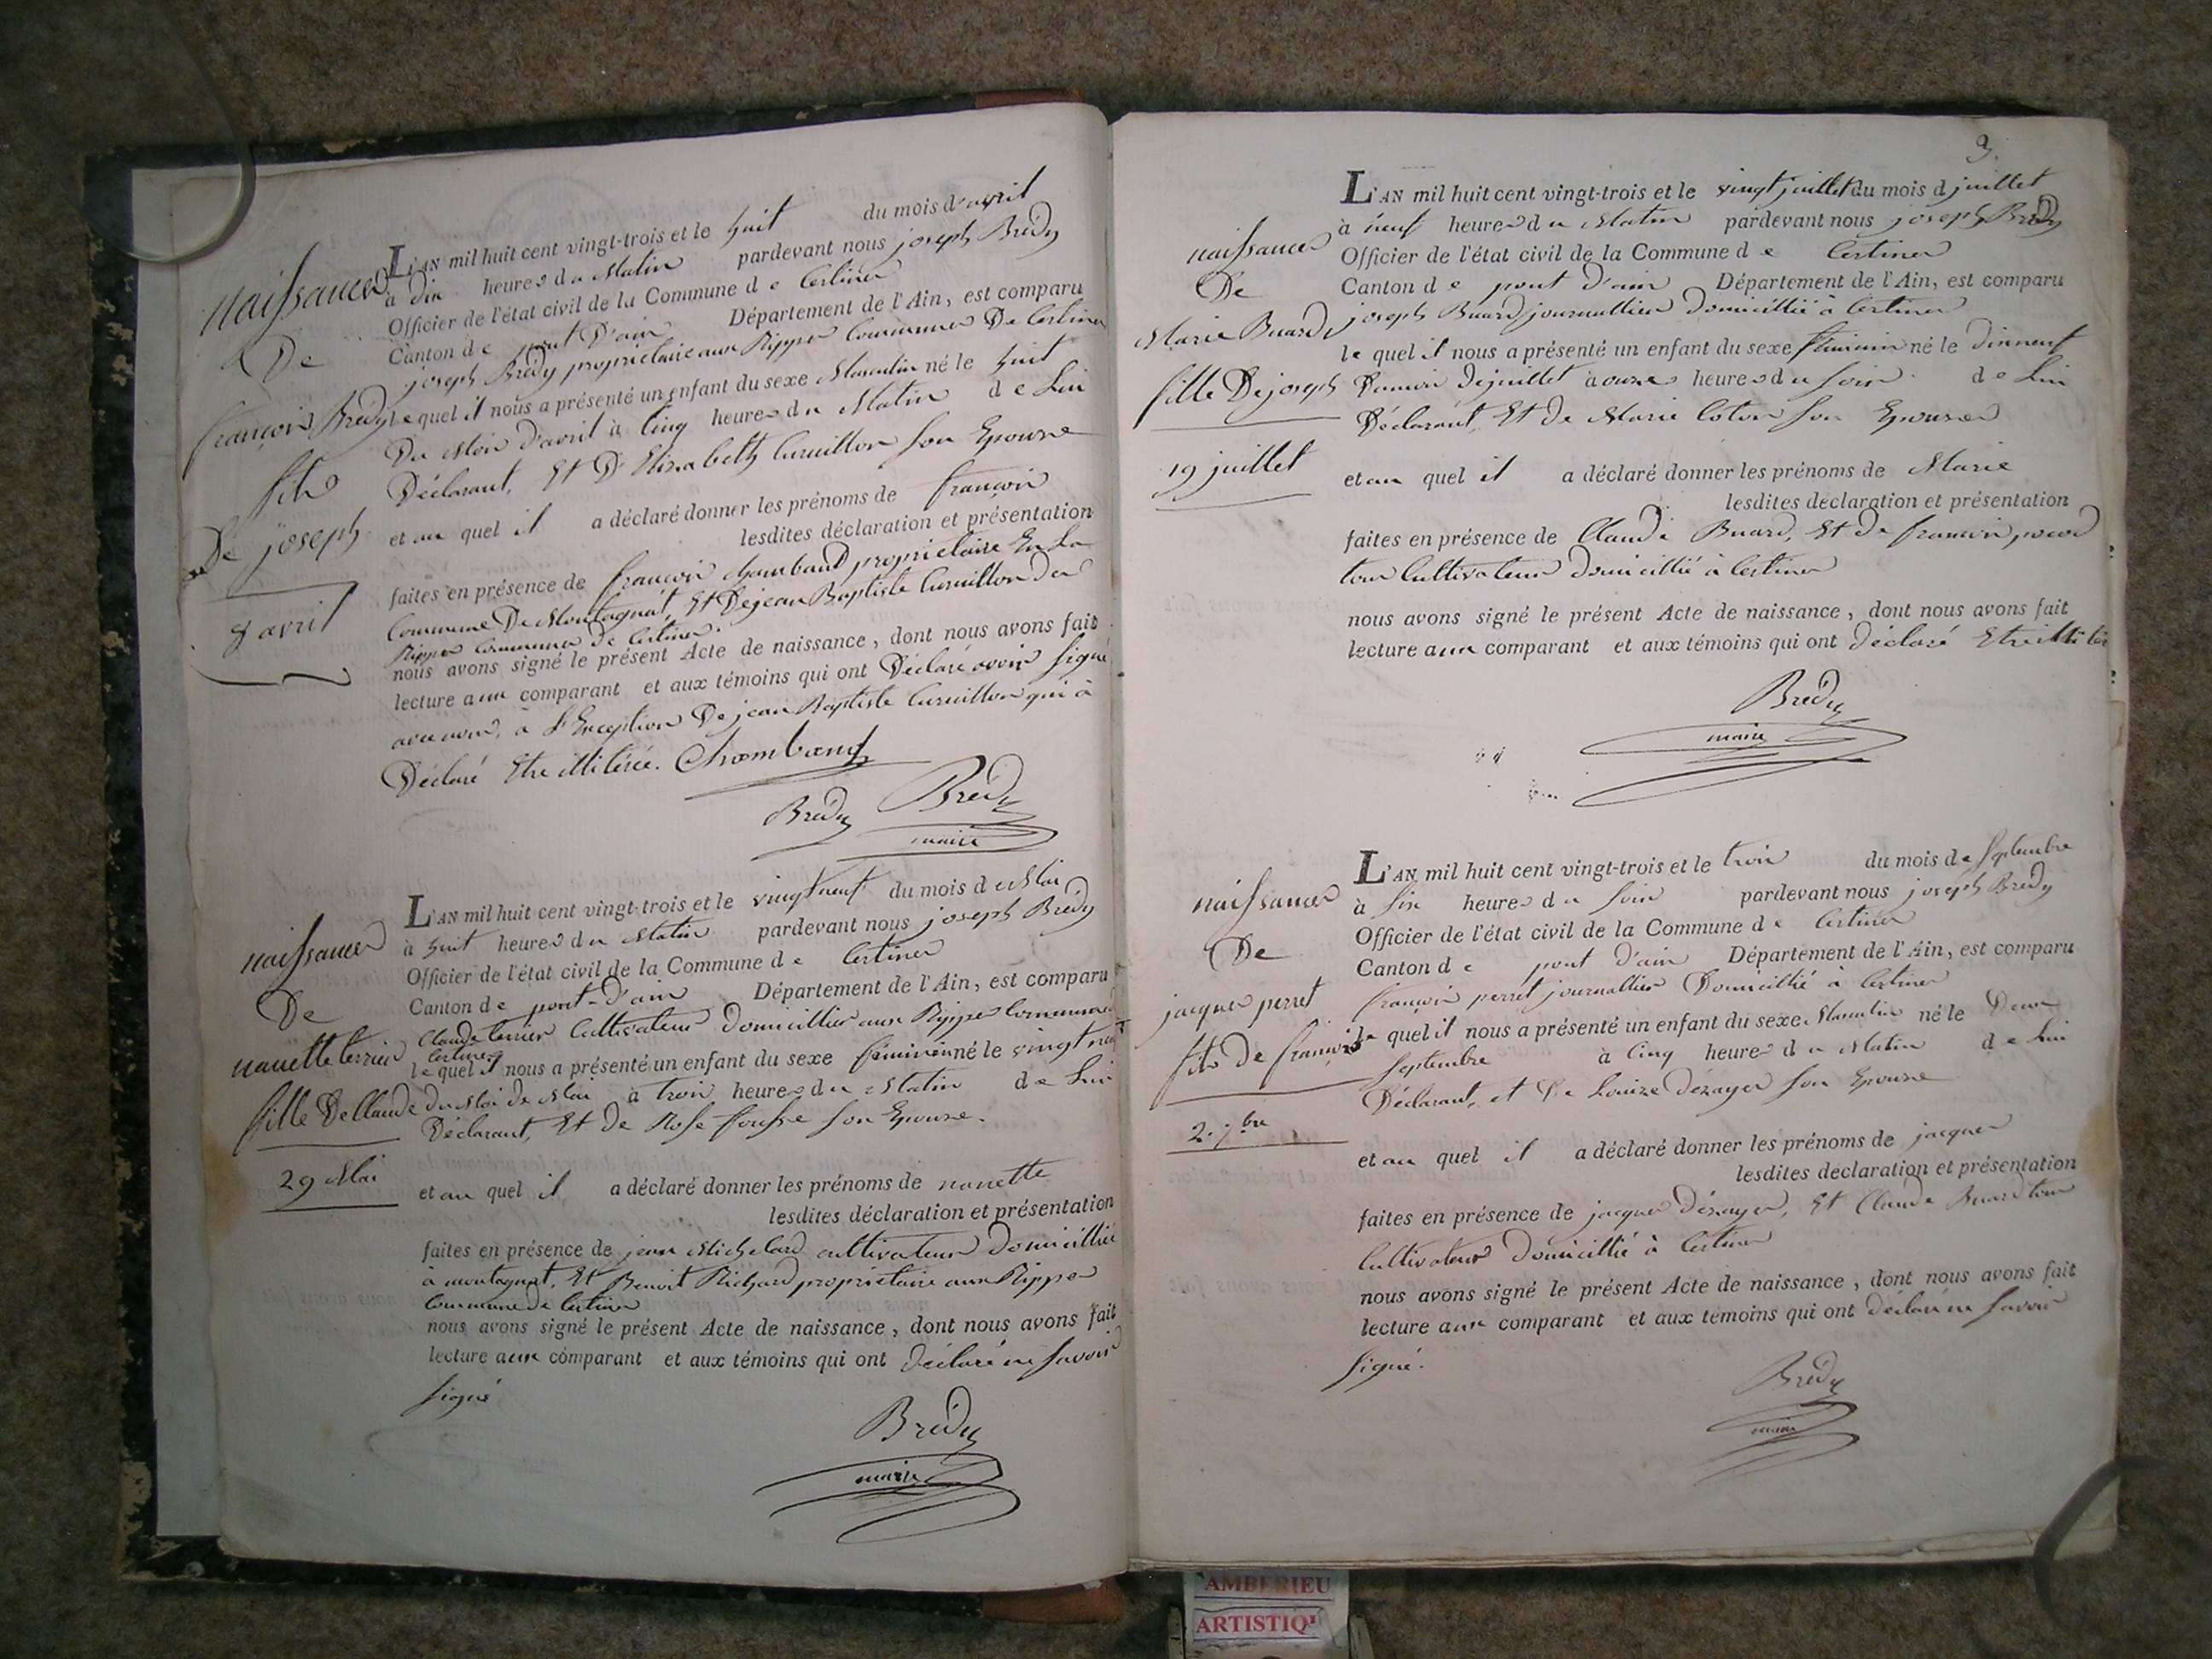 naissance
De
françois Bredy
fils
De joseph
8 avril
L'AN mil huit cent vingt-trois et le huit du mois d'avril
à dix heures du Matin pardevant nous joseph Bredy
Officier de l'état civil de la Commune de Certines
Canton de pont D'ain Département de l'Ain, est comparu
joseph Bredy propriétaire aux Rippes Commune De Certines
lequel il nous a présenté un enfant du sexe Masculin né le huit
Du Mois d'avril à Cinq heures du Matin de Lui
Déclarant, Et D'Elisabeth Curnillon son Epouse
et au quel il a déclaré donner les prénoms de françois
lesdites déclaration et présentation
faites en présence de françois Chambaud propriétaire En La
Commune De Montagnat, Et De jean Baptiste Curnillon Des
Rippes Commune de Certines.
nous avons signé le présent Acte de naissance, dont nous avons fait
lecture aux comparant et aux témoins qui ont Déclaré avoir signé
avec nous, à L'Exception De jean Baptiste Curnillon qui à
Déclaré Etre illitérée. Chambaud
Bredy Bredy
maire
naissance
De
nanette terrier
fille De Claude
29 Mai
L'AN mil huit cent vingt-trois et le vingt neuf du mois de Mai
à huit heures du Matin pardevant nous joseph Bredy
Officier de l'état civil de la Commune de Certines
Canton de pont-D'ain Département de l'Ain, est comparu
Claude terrier Cultivateur domicillier aux Rippes Commune
Certines
lequel il nous a présenté un enfant du sexe féminin né le vingt neuf
du Moi de Mai à trois heures du Matin de Lui
Déclarant, Et de Rose fousse son Epouse.
et au quel il a déclaré donner les prénoms de nanette
lesdites déclaration et présentation
faites en présence de jean Michelard cultivateur domicillié
à montagnat, Et Benoit Richard propriétaire aux Rippes
Commune de Certines
nous avons signé le présent Acte de naissance, dont nous avons fait
lecture aux comparant et aux témoins qui ont déclaré ne savoir
signé
Bredy
maire
3.
naissance
De
Marie Buard
fille De joseph
19 juillet
L'AN mil huit cent vingt-trois et le vingt juillet du mois d juillet
à neuf heures du Matin pardevant nous joseph Bredy
Officier de l'état civil de la Commune de Certines
Canton de pont d'ain Département de l'Ain, est comparu
joseph Buard journallier domicillié à Certines
le quel il nous a présenté un enfant du sexe féminin né le dixneuf
De juillet à onze heures du soir de Lui
Déclarant, Et de Marie Coton son Epouse
et au quel il a déclaré donner les prénoms de Marie
lesdites déclaration et présentation
faites en présence de Claude Buard, Et de françois
tous Cultivateurs domicillié à Certines
nous avons signé le présent Acte de naissance, dont nous avons fait
lecture aux comparant et aux témoins qui ont déclaré Etre
Bredy
maire
naissance
De
jacques perret
fils de françois
2. 7bre
L'AN mil huit cent vingt-trois et le trois du mois de septembre
à six heures du soir pardevant nous joseph Bredy
Officier de l'état civil de la Commune de Certines
Canton de pont d'ain Département de l'Ain, est comparu
françois perret journallier Domicillié à Certines
le quel il nous a présenté un enfant du sexe Masculin né le Deux
septembre à Cinq heures du Matin de Lui
Déclarant, et De Louize dézayer son Epouse
et au quel il a déclaré donner les prénoms de jacques
lesdites declaration et présentation
faites en présence de jacques dézayer, Et Claude Buard tous
Cultivateurs domicillié à Certines
nous avons signé le présent Acte de naissance, dont nous avons fait
lecture aux comparant et aux témoins qui ont déclaré ne savoir
signé.
Bredy
maire
AMBERIEU
ARTISTIQ